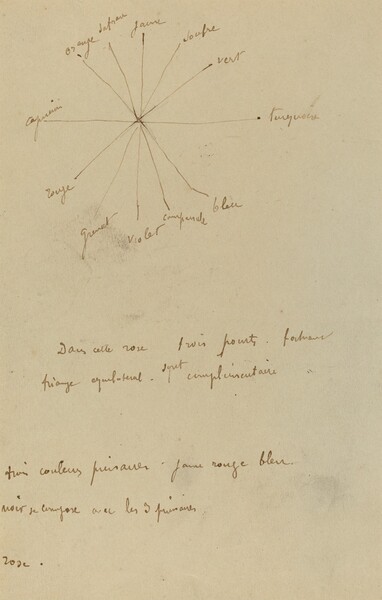 jaune
safran
soufre
orange
vert
capucine
turquoise
rouge
bleu
grenat
violet
campanule
Dans cette rose trois points formant
triangle equilateral. sont complimentaire
trois couleurs primaires. jaune rouge bleu
noir se compose avec les 3 primaires
rose.